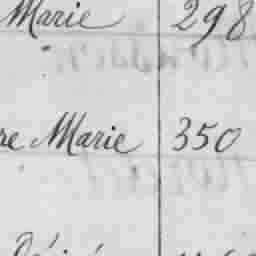 Marie 298
re Marie 350